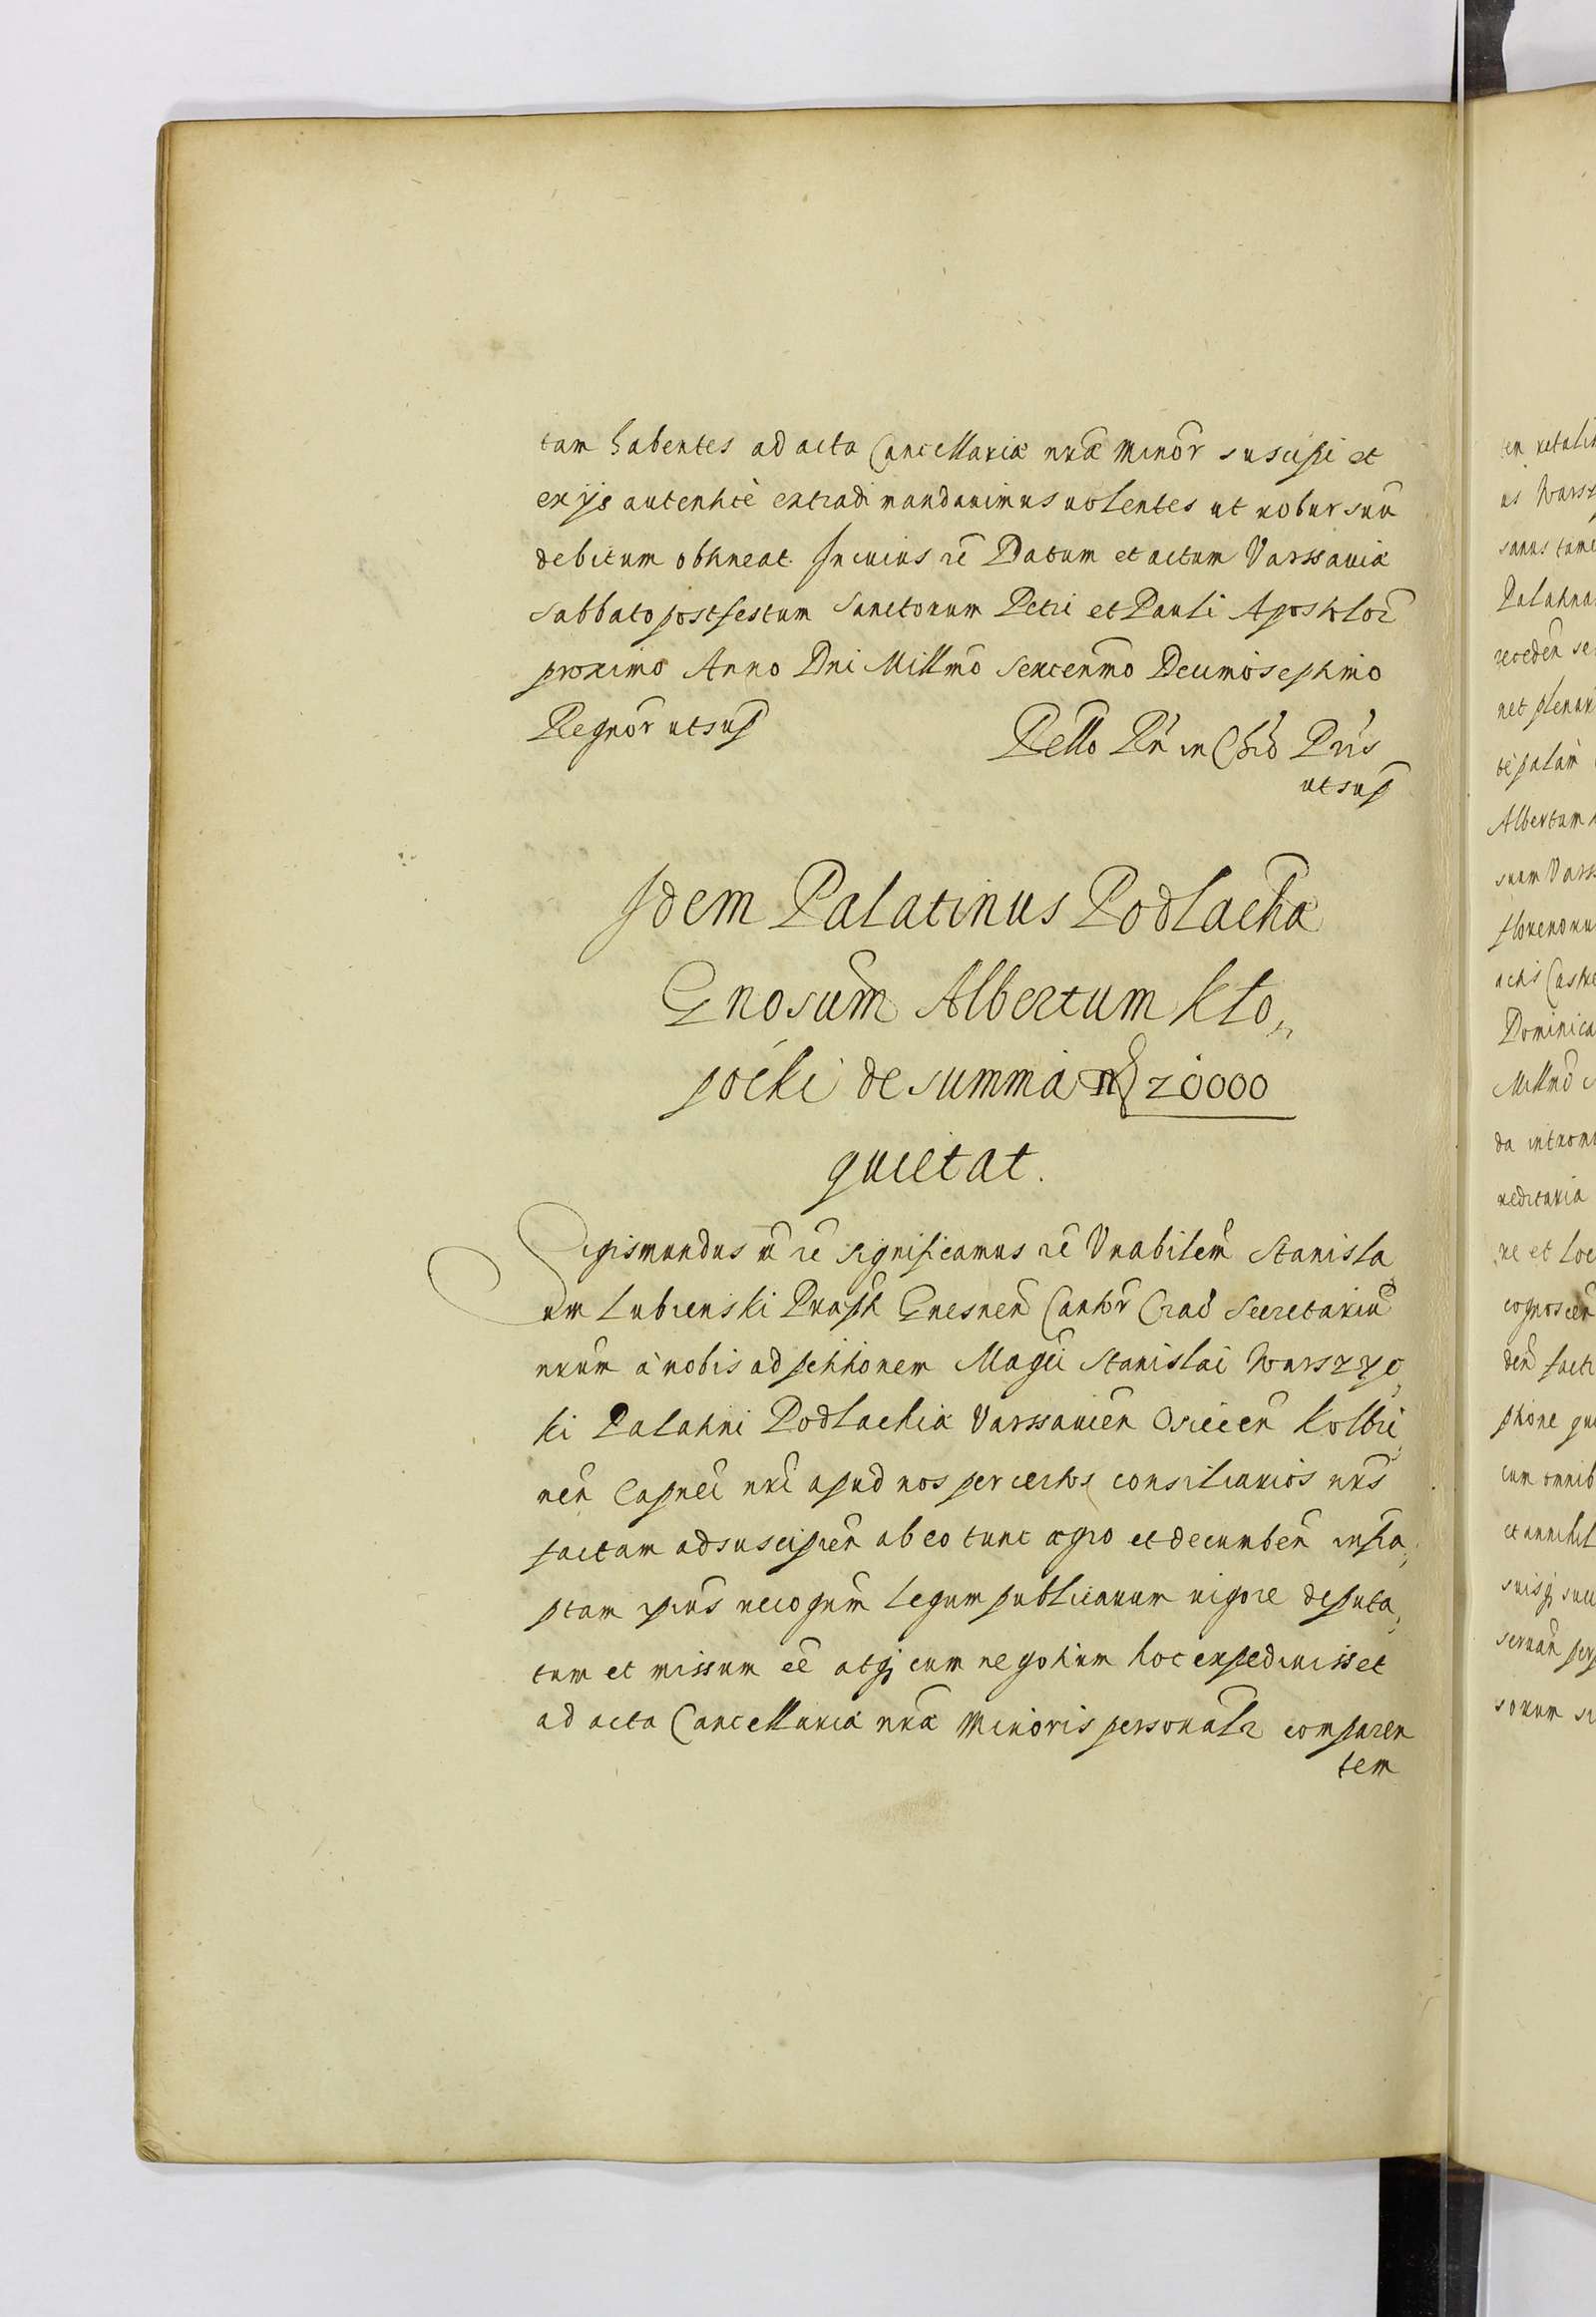 tam habentes ad acta Cancellariæ nræ Minor suscipi et
ex ijs autenticè extradi mandavimus volentes ut robur suu
debitum obtineat. In cuius re Datum et actum Varssaviæ
Sabbato post festum Sanctorum Petri et Pauli Apostolor
proximo Anno Dni Millmo Sexcenmo Decimo septimo
Regnor ut sup Rello Rn in Chro Pris
ut sup
Idem Palatinus Podlachiæ
Gnosum Albertum Kło,,
pocki de summa 20000
quietat.
Sigismundus re significamus re Vnabilem Stanisla
um Lubienski Præpti Gnesnen Cantor Crac Secretariu
nrum à nobis ad petitionem Magci Stanislai Warszyc,
ki Palatini Podlachiæ Varssavien Osiecen Kolbi,
nen Capnei nri apud nos per certos consiliarios nros
factam ad suscipien ab eo tunc ægro et decumben infra,
ptam ipius recognem legum publicarum vigore deputa,
tum et missum ee atq cum negotium hoc expedivisset
ad acta Cancellariæ nræ Minoris personalr comparen
tem
ten
us Warsz
Palatina
receden se
net plenar
te palam
Albertum
suam Vars
florenoru
actis Castre
Dominica
Millmo
da intromi
reditaria
ne et loc
cognoscen
den facti
ptione
cum omnib
et annihil
suisq succ
sorum